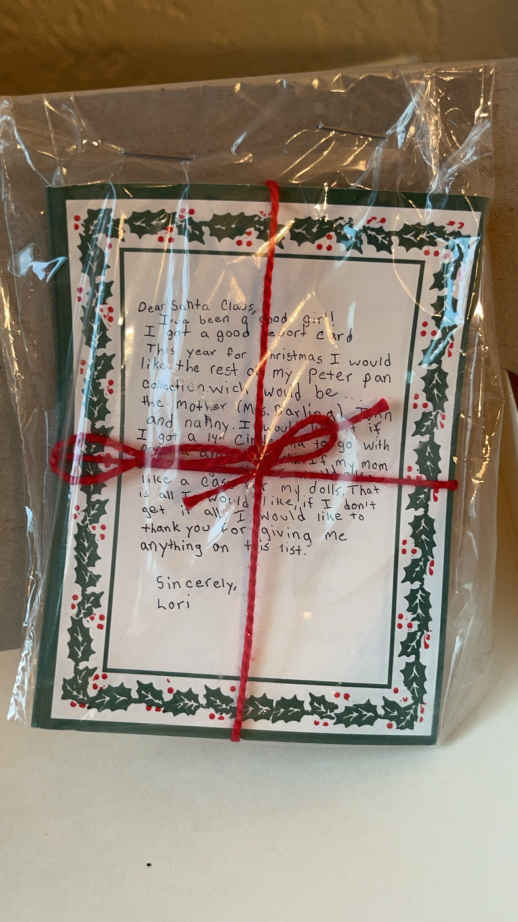 Dear Santa Claus,
I've been a good girl!
I got a good report card
This year for Christmas I would
like the rest of my Peter pan
colection wich would be...
the mother (Mrs. Darling) John
and nanny. I would if
I got a to go with
if my mom
like a my dolls. That
is all I would like, if I don't
get it all I would like to
thank you for giving me
anything on this list.
Sincerely,
Lori